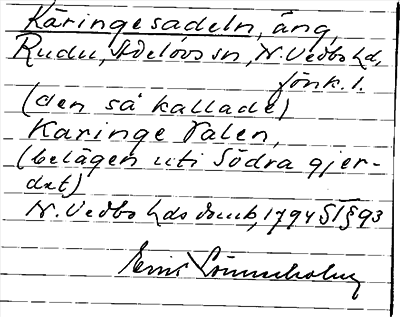 Käringesadeln, äng,
Rudu, Adelövs sn, N. Vedbo hd,
Jönk. l.
(den så kallade)
Karinge Valen,
(belägen uti Södra gjer-
det)
N. Vedbo hds domb, 1794 § 93
Erik